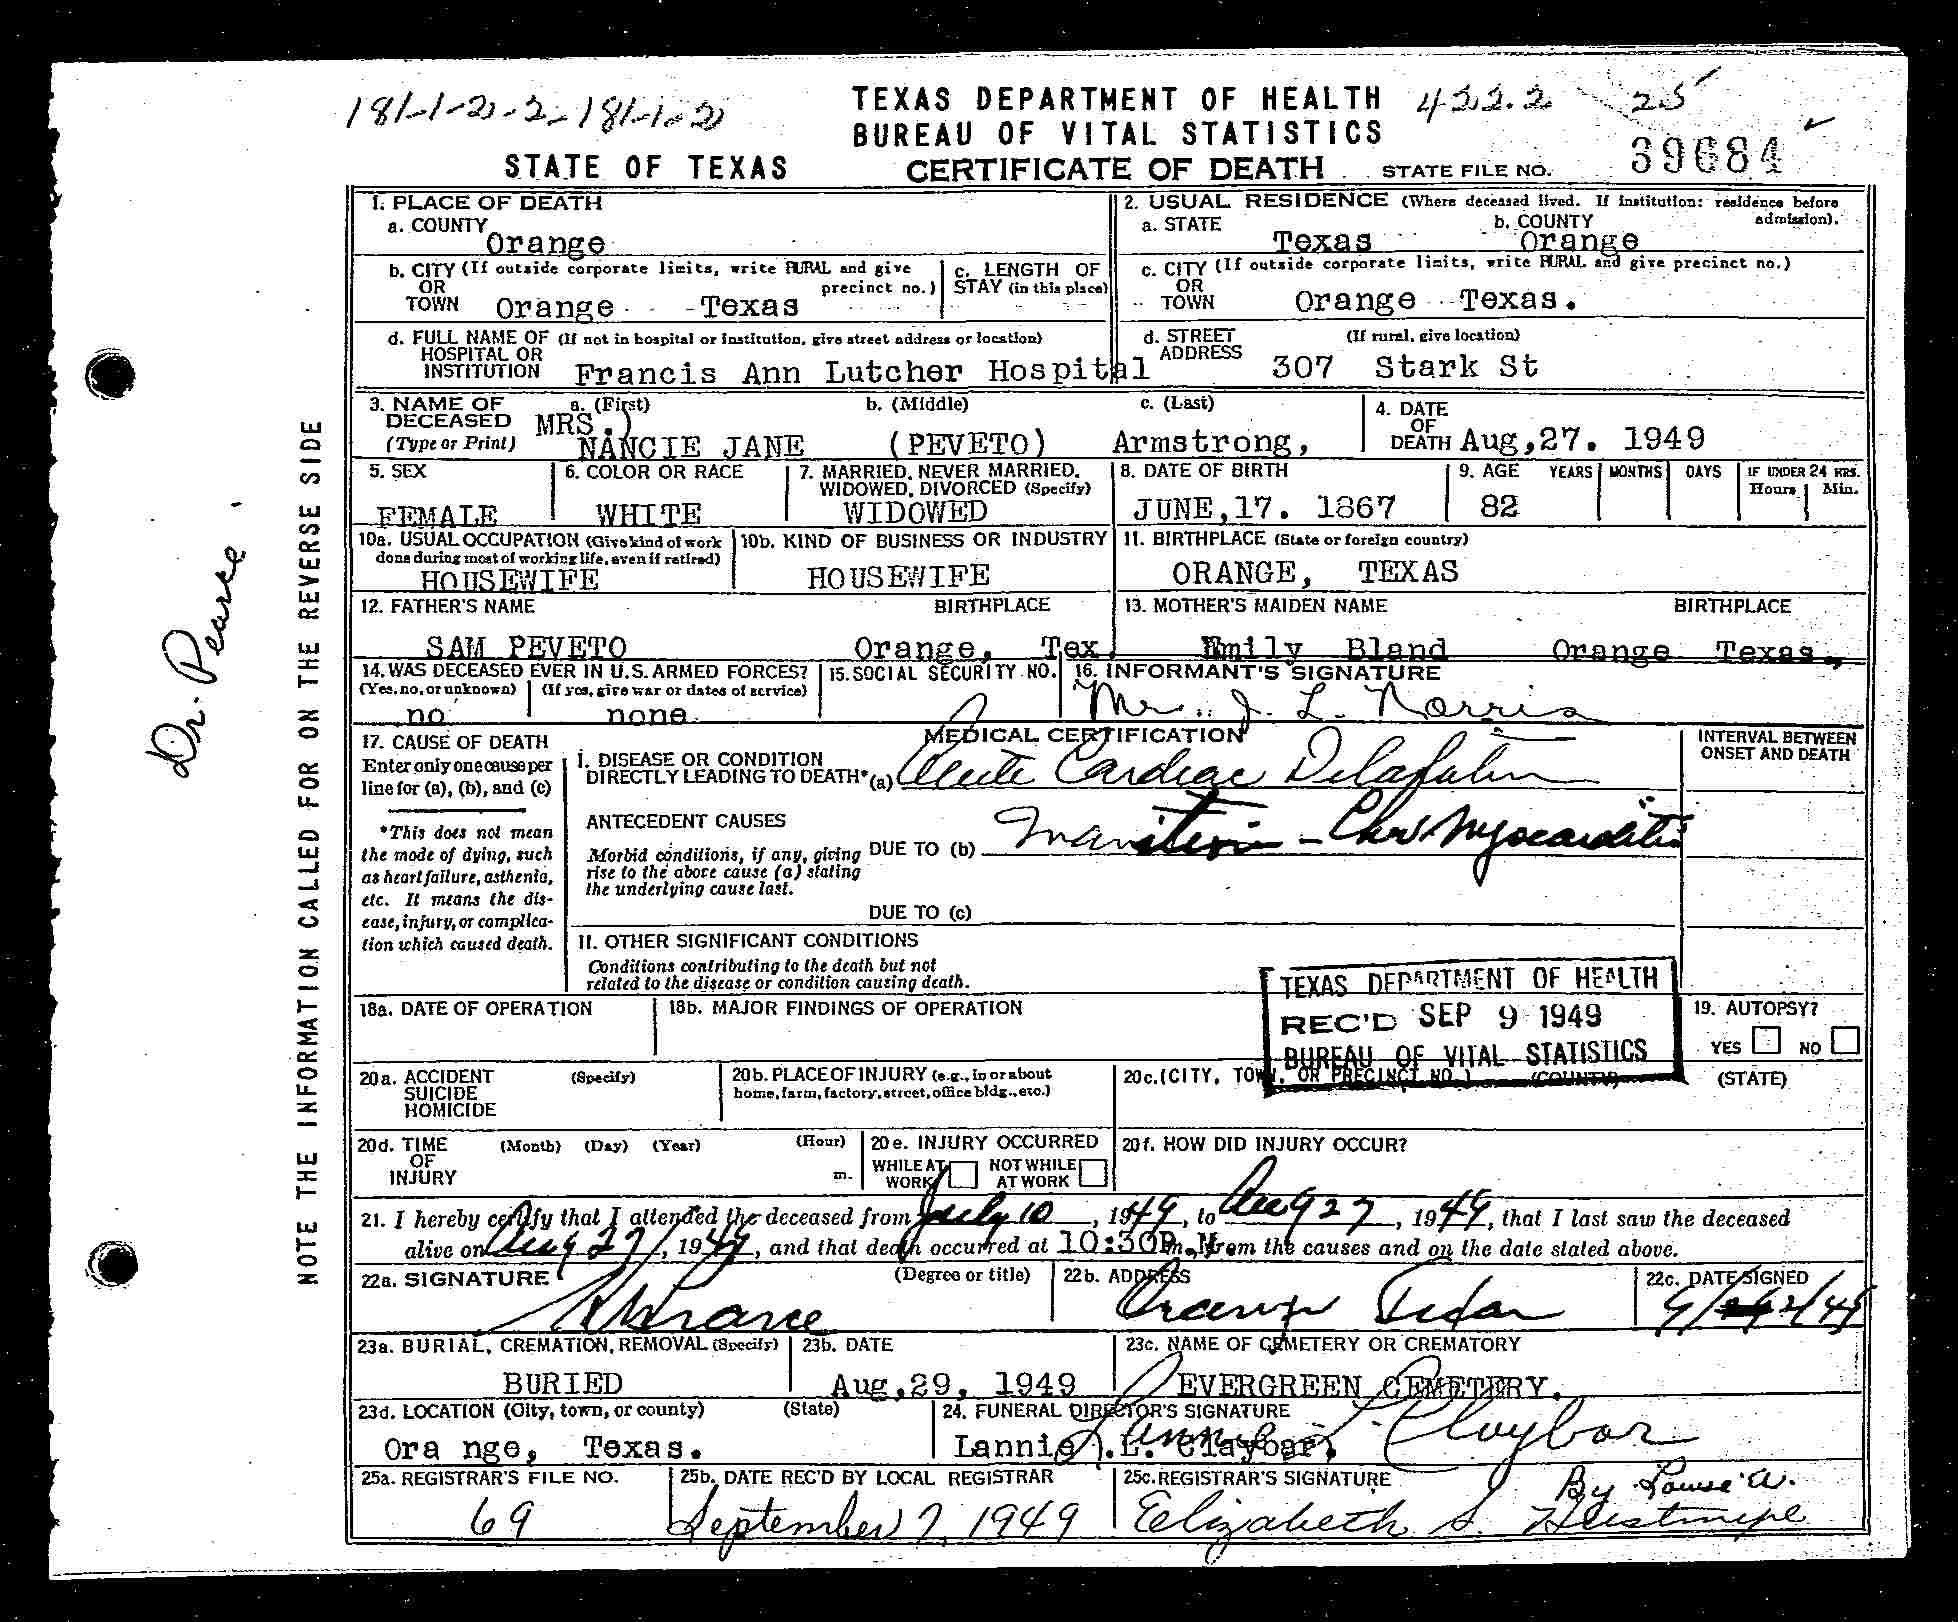 181-1-2-2-181-1-2
TEXAS DEPARTMENT OF HEALTH 422.2 25
BUREAU OF VITAL STATISTICS
STATE OF TEXAS CERTIFICATE OF DEATH STATE FILE NO. 39684
NOTE THE INFORMATION CALLED FOR ON THE REVERSE SIDE
Dr. Pearce
1. PLACE OF DEATH
a. COUNTY Orange
2. USUAL RESIDENCE (Where deceased lived. If institution: residence before admission).
a. STATE Texas b. COUNTY Orange
b. CITY (If outside corporate limits, write RURAL and give precinct no.)
OR TOWN Orange Texas
c. LENGTH OF STAY (in this place)
c. CITY (If outside corporate limits, write RURAL and give precinct no.)
OR TOWN Orange Texas.
d. FULL NAME OF (If not in hospital or institution, give street address or location)
HOSPITAL OR INSTITUTION Francis Ann Lutcher Hospital
d. STREET ADDRESS (If rural, give location)
307 Stark St
3. NAME OF DECEASED (Type or Print) a. (First) b. (Middle) c. (Last)
MRS.) NANCIE JANE (PEVETO) Armstrong,
4. DATE OF DEATH Aug,27. 1949
5. SEX FEMALE
6. COLOR OR RACE WHITE
7. MARRIED, NEVER MARRIED, WIDOWED, DIVORCED (Specify) WIDOWED
8. DATE OF BIRTH JUNE,17. 1867
9. AGE YEARS MONTHS DAYS IF UNDER 24 HRS. Hours Min.
82
10a. USUAL OCCUPATION (Give kind of work done during most of working life, even if retired)
HOUSEWIFE
10b. KIND OF BUSINESS OR INDUSTRY
HOUSEWIFE
11. BIRTHPLACE (State or foreign country)
ORANGE, TEXAS
12. FATHER'S NAME BIRTHPLACE
SAM PEVETO Orange, Tex.
13. MOTHER'S MAIDEN NAME BIRTHPLACE
Emily Bland Orange Texas.,
14. WAS DECEASED EVER IN U.S. ARMED FORCES?
(Yes, no, or unknown) (If yes, give war or dates of service)
no none
15. SOCIAL SECURITY NO.
16. INFORMANT'S SIGNATURE
Mrs. J. L. Norris
17. CAUSE OF DEATH
Enter only one cause per line for (a), (b), and (c)
*This does not mean the mode of dying, such as heart failure, asthenia, etc. It means the disease, injury, or complication which caused death.
MEDICAL CERTIFICATION
INTERVAL BETWEEN ONSET AND DEATH
I. DISEASE OR CONDITION
DIRECTLY LEADING TO DEATH* (a) Acute Cardiac
ANTECEDENT CAUSES
Morbid conditions, if any, giving rise to the above cause (a) stating the underlying cause last.
DUE TO (b) Inanition - Chr Myocarditis
DUE TO (c)
II. OTHER SIGNIFICANT CONDITIONS
Conditions contributing to the death but not related to the disease or condition causing death.
TEXAS DEPARTMENT OF HEALTH
REC'D SEP 9 1949
BUREAU OF VITAL STATISTICS
18a. DATE OF OPERATION
18b. MAJOR FINDINGS OF OPERATION
19. AUTOPSY?
YES NO
20a. ACCIDENT SUICIDE HOMICIDE (Specify)
20b. PLACE OF INJURY (e.g., in or about home, farm, factory, street, office bldg., etc.)
20c. (CITY, TOWN, OR PRECINCT NO.) (COUNTY) (STATE)
20d. TIME OF INJURY (Month) (Day) (Year) (Hour) m.
20e. INJURY OCCURRED
WHILE AT WORK NOT WHILE AT WORK
20f. HOW DID INJURY OCCUR?
21. I hereby certify that I attended the deceased from July 10, 1949, to Aug 27, 1949, that I last saw the deceased
alive on Aug 27, 1949, and that death occurred at 10:30P.M. m., from the causes and on the date stated above.
22a. SIGNATURE (Degree or title)
22b. ADDRESS
Orange Texas
22c. DATE SIGNED
23a. BURIAL, CREMATION, REMOVAL (Specify)
BURIED
23b. DATE
Aug,29, 1949
23c. NAME OF CEMETERY OR CREMATORY
EVERGREEN CEMETERY.
23d. LOCATION (City, town, or county) (State)
Ora nge, Texas.
24. FUNERAL DIRECTOR'S SIGNATURE
Lannie .L. Claybar. Lannie L. Claybar
25a. REGISTRAR'S FILE NO.
69
25b. DATE REC'D BY LOCAL REGISTRAR
September 7, 1949
25c. REGISTRAR'S SIGNATURE
Elizabeth S. By Louise W.